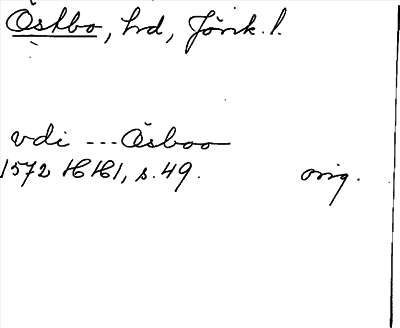 Östbo, hrd, Jönk. l.
vdi --- Ösboo
1572 HH1, s. 49. orig.